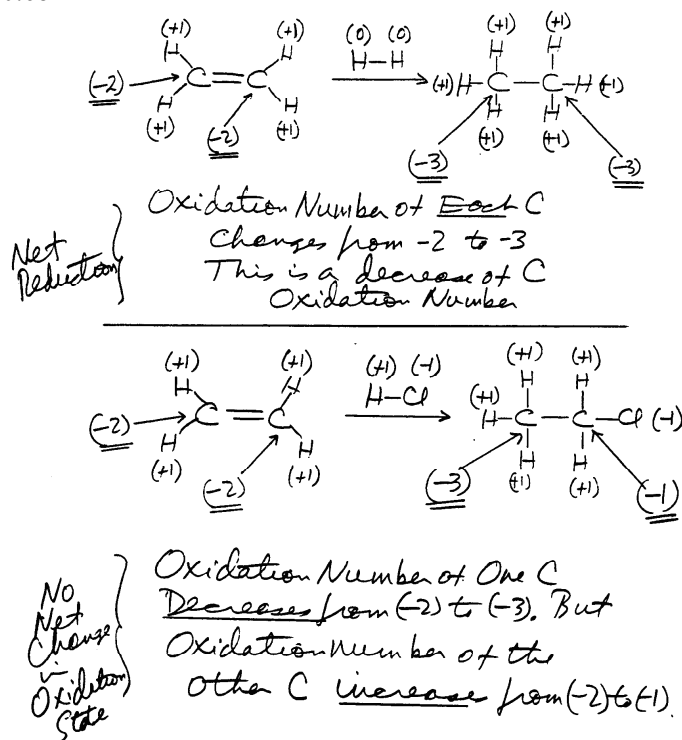 (+1) (+1) (0) (0) (+1) (+1)
H H H—H H H
(-2) C=C (+1) H—C—C—H (+1)
H H H H
(+1) (-2) (+1) (+1) (+1)
(-3) (-3)
Net Reduction
Oxidation Number of Each C
Changes from -2 to -3
This is a decrease of C
Oxidation Number
(+1) (+1) (+1) (-1) (+1) (+1)
H H H—Cl H H
(-2) C=C (+1) H—C—C—Cl (-1)
H H H H
(+1) (-2) (+1) (-3) (+1) (+1) (-1)
No
Net
Change
in
Oxidation
State
Oxidation Number of One C
Decreases from (-2) to (-3). But
Oxidation number of the
other C increases from (-2) to (-1).